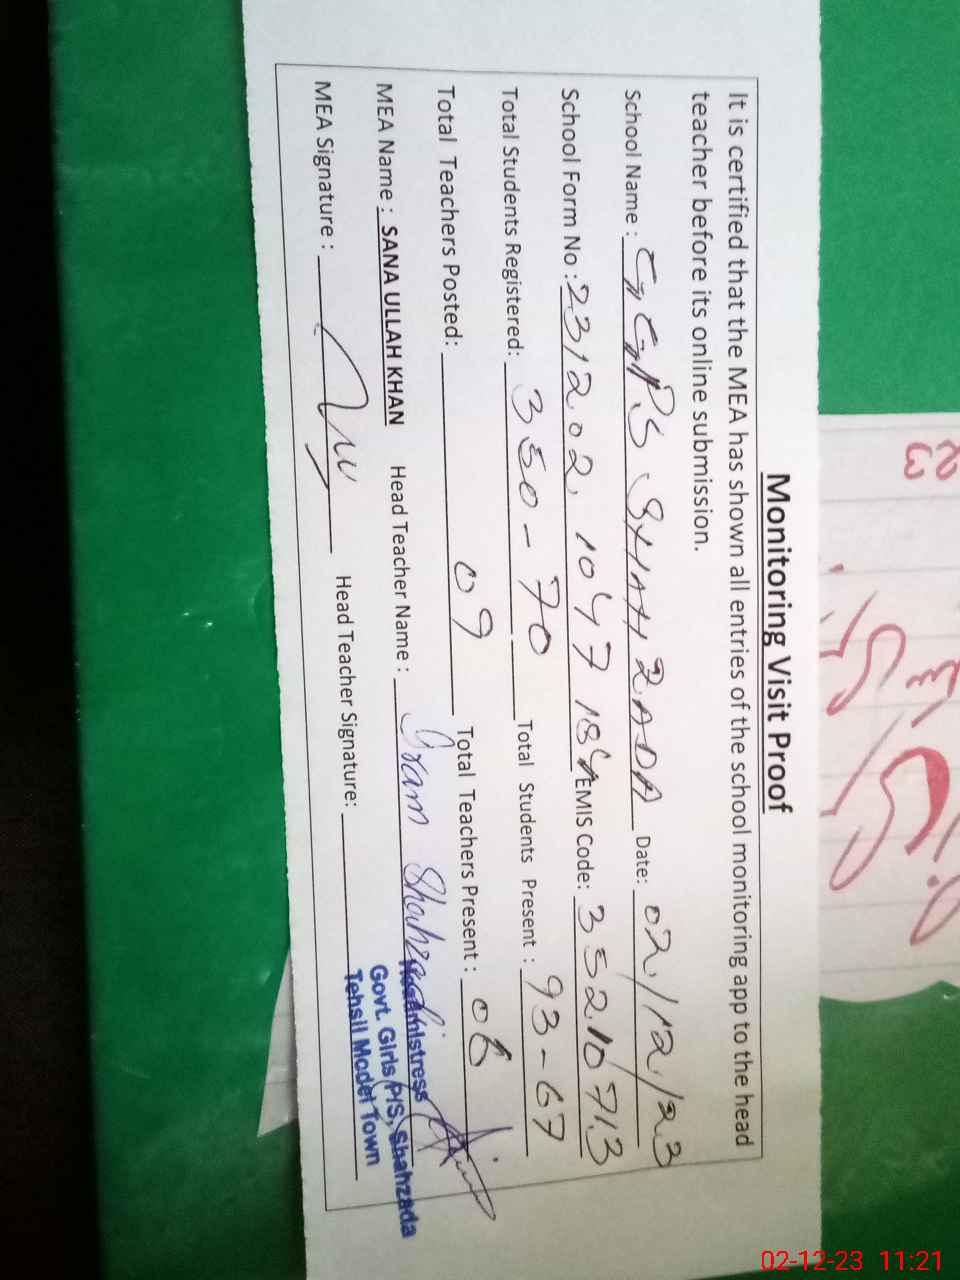 Monitoring Visit Proof
It is certified that the MEA has shown all entries of the school monitoring app to the head
teacher before its online submission.
School Name : GGPS SHAHZADA Date: 02/12/23
School Form No : 231202, 1047 184 EMIS Code: 35210713
Total Students Registered: 350-70 Total Students Present : 93-67
Total Teachers Posted: 09 Total Teachers Present : 06
MEA Name : SANA ULLAH KHAN Head Teacher Name : Iram Shahzadi
MEA Signature : Head Teacher Signature:
Headmistress
Govt. Girls P/S, Shahzada
Tehsil Model Town
02-12-23 11:21